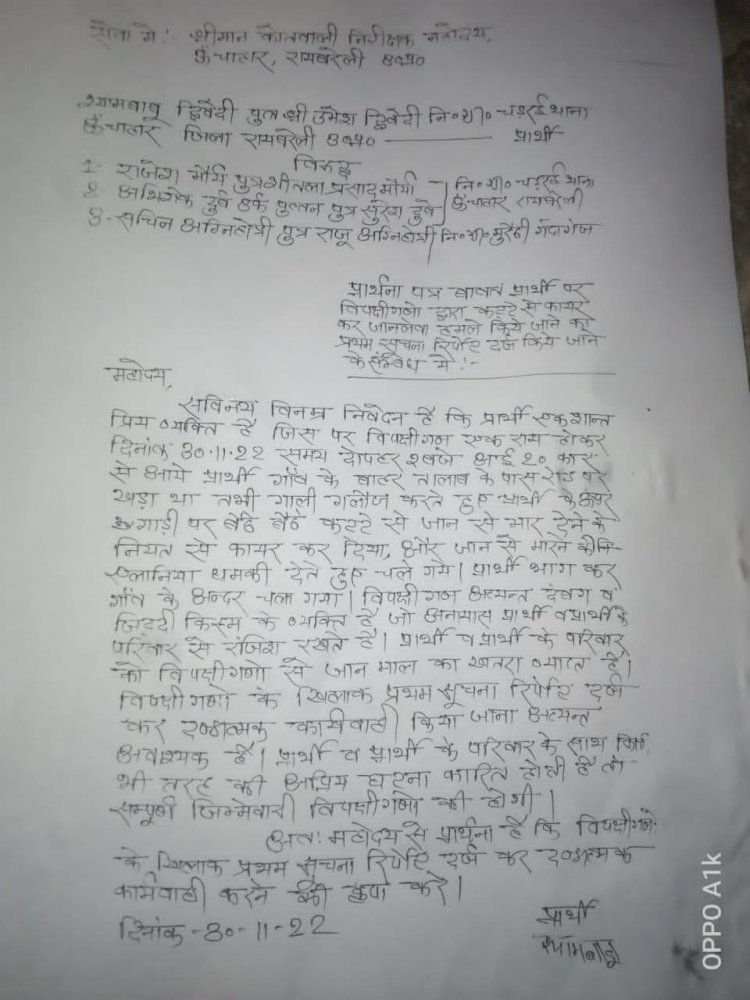 सेवा में: श्रीमान कोतवाली निरीक्षक महोदय,
ऊँचाहार, रायबरेली उ०प्र०
श्यामबाबू द्विवेदी पुत्र श्री उमेश द्विवेदी नि०ग्रा० चड़रई थाना
ऊँचाहार जिला रायबरेली उ०प्र० ——— प्रार्थी
विरुद्ध
1- राजेश मौर्य पुत्र शीतला प्रसाद मौर्य } नि०ग्रा० चड़रई थाना
2 अभिषेक दुबे उर्फ पुत्तन पुत्र सुरेश दुबे } ऊँचाहार रायबरेली
3- सचिन अग्निहोत्री पुत्र राजू अग्निहोत्री नि०ग्रा० मुरैठी गदागंज
प्रार्थना पत्र बाबत प्रार्थी पर
विपक्षीगणो द्वारा कट्टे से फायर
कर जानलेवा हमले किये जाने का
प्रथम सूचना रिपोर्ट दर्ज किये जाने
के संबंध में:-
महोदय,
सविनय विनम्र निवेदन है कि प्रार्थी एक शान्त
प्रिय व्यक्ति है जिस पर विपक्षीगण एक राय होकर
दिनांक 30.11.22 समय दोपहर 2 बजे आई 20 कार
से आये प्रार्थी गाँव के बाहर तालाब के पास रोड पर
खड़ा था तभी गाली गलौज करते हुए प्रार्थी के ऊपर
गाड़ी पर बैठे बैठे कट्टे से जान से मार देने के
नियत से फायर कर दिया, और जान से मारने की
एलानिया धमकी देते हुए चले गये। प्रार्थी भाग कर
गाँव के अन्दर चला गया। विपक्षीगण अत्यन्त दबंग व
जिद्दी किस्म के व्यक्ति है जो अनायास प्रार्थी व प्रार्थी के
परिवार से रंजिश रखते है। प्रार्थी व प्रार्थी के परिवार
को विपक्षीगणो से जान माल का खतरा व्याप्त है।
विपक्षीगणो के खिलाफ प्रथम सूचना रिपोर्ट दर्ज
कर दण्डात्मक कार्यवाही किया जाना अत्यन्त
आवश्यक है। प्रार्थी व प्रार्थी के परिवार के साथ किसी
भी तरह की अप्रिय घटना कारित होती है तो
सम्पूर्ण जिम्मेवारी विपक्षीगणो की होगी।
अतः महोदय से प्रार्थना है कि विपक्षीगणो
के खिलाफ प्रथम सूचना रिपोर्ट दर्ज कर दण्डात्मक
कार्यवाही करने की कृपा करे।
दिनांक - 30-11-22
प्रार्थी
श्यामबाबू
OPPO A1k